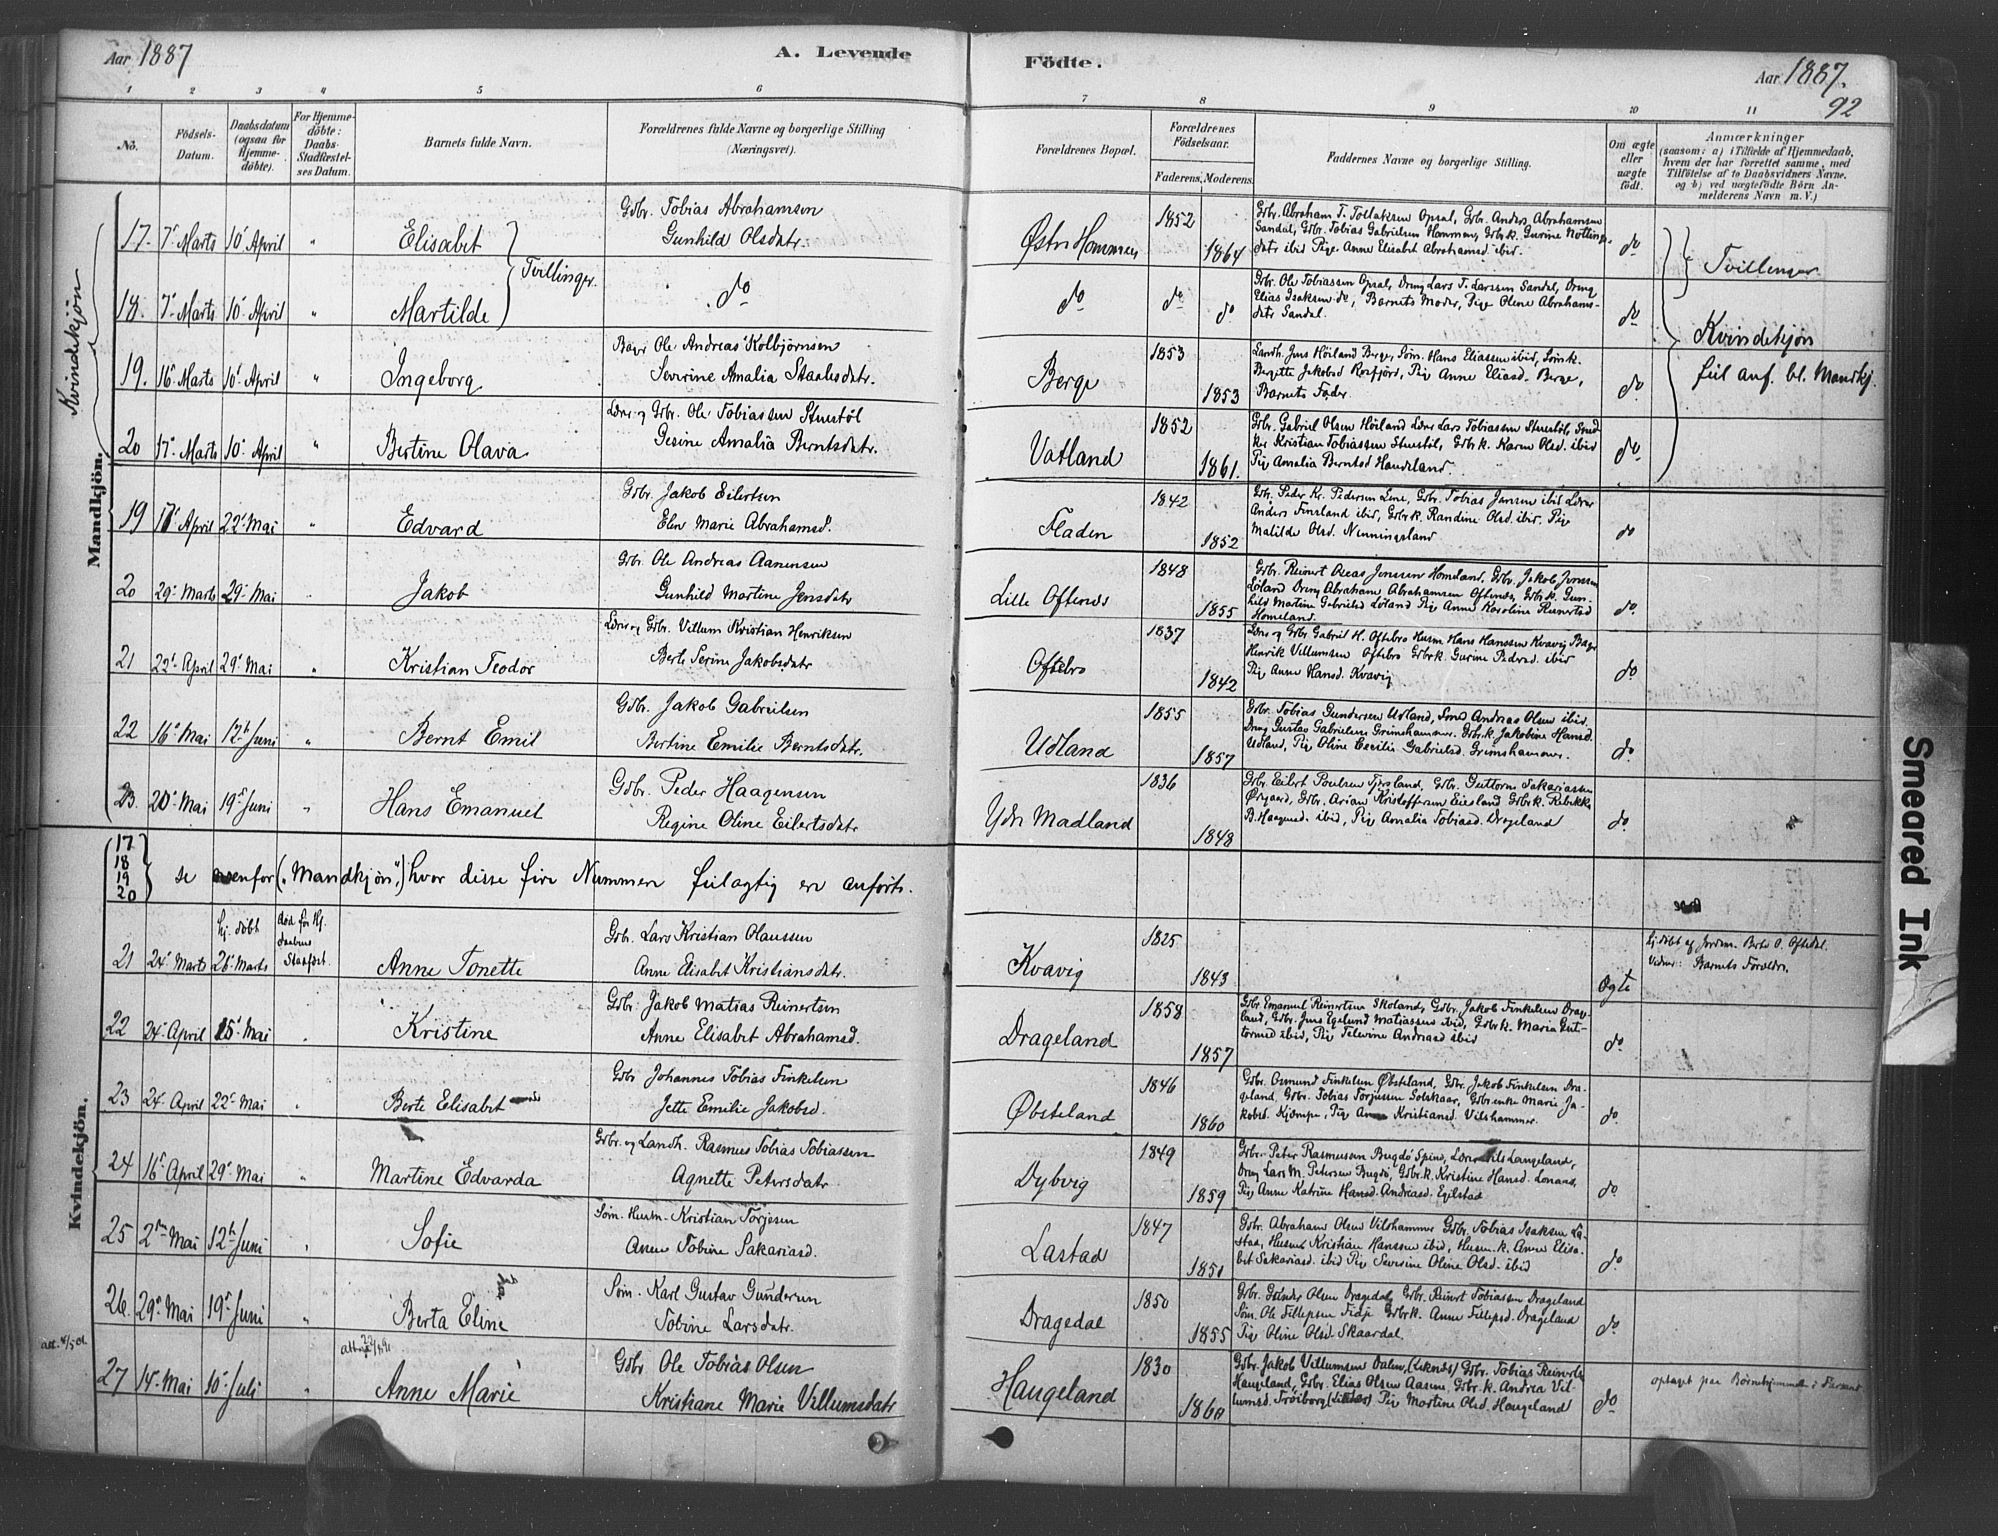 Aar 1887
A. Levende
Födte.
Aar 1887.
92
1 2 3 4 5 6 7 8 9 10 11
No.
Födsels-
Datum.
Daabsdatum
(ogsaa for
Hjemme-
döbte).
For Hjemme-
döbte:
Daabs-
Stadfæstel-
ses Datum.
Barnets fulde Navn.
Forældrenes fulde Navne og borgerlige Stilling
(Næringsvei).
Forældrenes Bopæl.
Forældrenes
Födselsaar.
Faderens. Moderens.
Faddernes Navne og borgerlige Stilling.
Om ægte
eller
uægte
født.
Anmærkninger
(saasom: a) i Tilfælde af Hjemmedaab,
hvem der har forrettet samme, med
Tilføielse af to Daabsvidners Navne,
og b) ved uægtefödte Börn An-
melderens Navn m. V.)
Kvindekjøn
Mandkjön.
17. 7de Marts 10de April " Elisabet
Gdbr. Tobias Abrahamsen
Gunhild Olsdatr.
Østre Hommen 1852 1864
Gdbr. Abraham T. Tollaksen Opsal, Gdbr. Anders Abrahamsen
Sandal, Gdbr. Tobias Gabrielsen Hommen, Gdbrk. Gurine
datr ibid Pige Anne Elisabet Abrahamsd. ibid.
do
Tvillinger.
Tvillinger
18. 7de Marts 10de April " Martilde
do
do do do
Gdbr. Ole Tobiassen Opsal, Dreng Lars T. Larssen Sandal, Dreng
Elias Isaksen do, Barnets Moder, Pige Olene Abrahams-
datr Sandal.
do
Kvindekjøn
feil anf. bl. Mandkj.
19. 16de Marts 10de April " Ingeborg
Bager Ole Andreas Kolbjørnsen
Severine Amalia Staalesdatr.
Berge 1853 1853
Landh. Jens Höiland Berge, Søm. Hans Eliassen ibid, Sömk.
Birgitte Jakobsd Rosfjord, Pige Anne Eliasd. Berge,
Barnets Fader.
do
20 17de Marts 10de April " Bertine Olava
Lærer og Gdbr. Ole Tobiassen Stuestöl
Gesine Amalia Berntsdatr.
Vatland 1852 1861.
Gdbr. Gabriel Olsen Høiland Lærer Lars Tobiassen Stuestöl, Sned-
ker Kristian Tobiassen Stuestöl, Gdbrk. Karen Olsd. ibid
Pige Amalia Berntsd Haudeland.
do
19 17de April 22de Mai " Edvard
Gdbr. Jakob Eilertsen
Elen Marie Abrahamsd.
Fladen 1842 1852
Gdbr. Peder Kr. Pedersen Lene, Gdbr. Tobias Jensen ibid Lærer
Anders Finsland ibid, Gdbrk. Randine Olsd. ibid. Pige
Matilde Olsd. Nenningsland
do
20 29de Marts 29de Mai Jakob
Gdbr. Ole Andreas Aanensen
Gunhild Martine Jensdatr
Lille Oftenes 1848 1855
Gdbr. Reinert Oseas Jenssen Homeland, Gdbr. Jakob Jenssen
Löland Dreng Abraham Abrahamsen Oftenes, Gdbrk. Gun-
hild Martine Gabrielsd Löland Pige Anne Karoline Reinertsd
Homeland.
do.
21 22de April 29de Mai " Kristian Teodor
Lærer og Gdbr. Villum Kristian Henriksen
Berte Serine Jakobsdatr
Oftebro 1837 1842
Lærer og Gdbr Gabriel H. Oftebro Husm. Hans Hanssen Kvavig Bager
Henrik Villumsen Oftebro Gdbrk. Gurine Pedersd. ibid
Pige Anne Hansd. Kvavig
do
22 16de Mai 12te Juni " Bernt Emil
Gdbr. Jakob Gabrielsen
Bertine Emilie Berntsdatr.
Udland 1855 1857
Gdbr. Tobias Gundersen Udland, Smed Andreas Olsen ibid.
Dreng Gustav Gabrielsen Grimshammer. Gdbrk. Jakobine Hansd.
Udland, Pige Oline Cecilie Gabrielsd. Grimshammer.
do
23. 20de Mai 19de Juni " Hans Emanuel
Gdbr. Peder Haagensen
Regine Oline Eilertsdatr
Ydre Madland 1836 1848
Gdbr. Eilert Poulsen Tjersland, Gdbr. Guttorm Sakariassen
Gdbr. Arian Kristoffersen Eiesland Gdbrk. Rebekka
B. Haagensd. ibid, Pige Amalia Tobiasd. Drageland
do
17
18
19
20
se ovenfor („Mandkjøn”) hvor disse fire Nummere feilagtig ere anført.
Kvindekjön.
21 24de Marts
hj. döbt
26de Marts
död før Hj.
daabens
Stadfæst.
Anne Tonette
Gdbr. Lars Kristian Olaussen
Anne Elisabet Kristiansdatr.
Kvavig 1825 1843
Ægte
hj. döbt af Jordm. Berte O. Oftedal.
Vidner: Barnets Forældre.
22 24de April 15de Mai Kristine
Gdbr. Jakob Matias Reinertsen
Anne Elisabet Abrahamsd.
Drageland 1858 1857
Gdbr. Emanuel Reinertsen Skoland, Gdbr. Jakob Finkelsen Drage-
land, Gdbr. Jens Egelund Matiassen ibid, Gdbrk. Maria Gut-
tormsd ibid, Pige Televine Andreasd ibid
do.
23 24de April 22de Mai Berte Elisabet
Gdbr Johannes Tobias Finkelsen
Jette Emilie Jakobsd.
Øbsteland 1846 1860
Gdbr. Osmund Finkelsen Øbsteland, Gdbr. Jakob Finkelsen Dra-
geland, Gdbr. Tobias Torjussen Solskaar, Gdbrenke Marie Ja-
kobsd. Kjempe, Pige Anne Kristiansd. Vilshammer.
do.
24 16de April 29de Mai " Martine Edvarda
Gdbr. og Landh. Rasmus Tobias Tobiassen
Agnette Petersdatr.
Dybvig 1849 1859
Gdbr. Peter Rasmussen Bugdø Spind, Lærer Nils Langeland,
Dreng Lars M. Petersen Bugdø, Gdbrk. Kristine Hansd. Lonaas,
Pige Anne Katrine Hansd. Andreasd. Egilstad
do.
25 2den Mai 12te Juni " Sofie
Søm. Husm. Kristian Torjesen
Anne Tobine Sakariasd.
Lastad 1847 1851
Gdbr. Abraham Olsen Vilshammer Gdbr. Tobias Isaksen La-
stad, Husmd Kristian Hanssen ibid, Husm.k. Anne Elisa-
bet Sakariasd. ibid Pige Severine Oline Olsd. ibid
do.
26. 29de Mai 19de Juni " Berta Eline
Søm. Karl Gustav Gundersen
Tobine Larsdatr.
Dragedal 1850 1855
Gdbr. Gunder Olsen Dragedal, Gdbr. Reinert Tobiassen Drageland
Søm. Ole Fillipsen Fidje Gdbrk. Anne Fillipsd. Drageland
Pige Oline Olsd. Skaardal.
do.
27 14de Mai 10de Juli " Anne Marie
Gdbr. Ole Tobias Olsen
Kristiane Marie Villumsdatr
Haugeland 1830 1860
Gdbr. Jakob Villumsen Dalen, (Liknes) Gdbr. Tobias Reinertsen
Haugeland, Gdbr. Elias Olsen Aasen, Gdbr.k. Andrea Vil-
lumsd. Tröiborg (Liknes) Pige Martine Olsd. Haugeland
do
optaget paa Børnehjemmet i Farsund
Smeared Ink